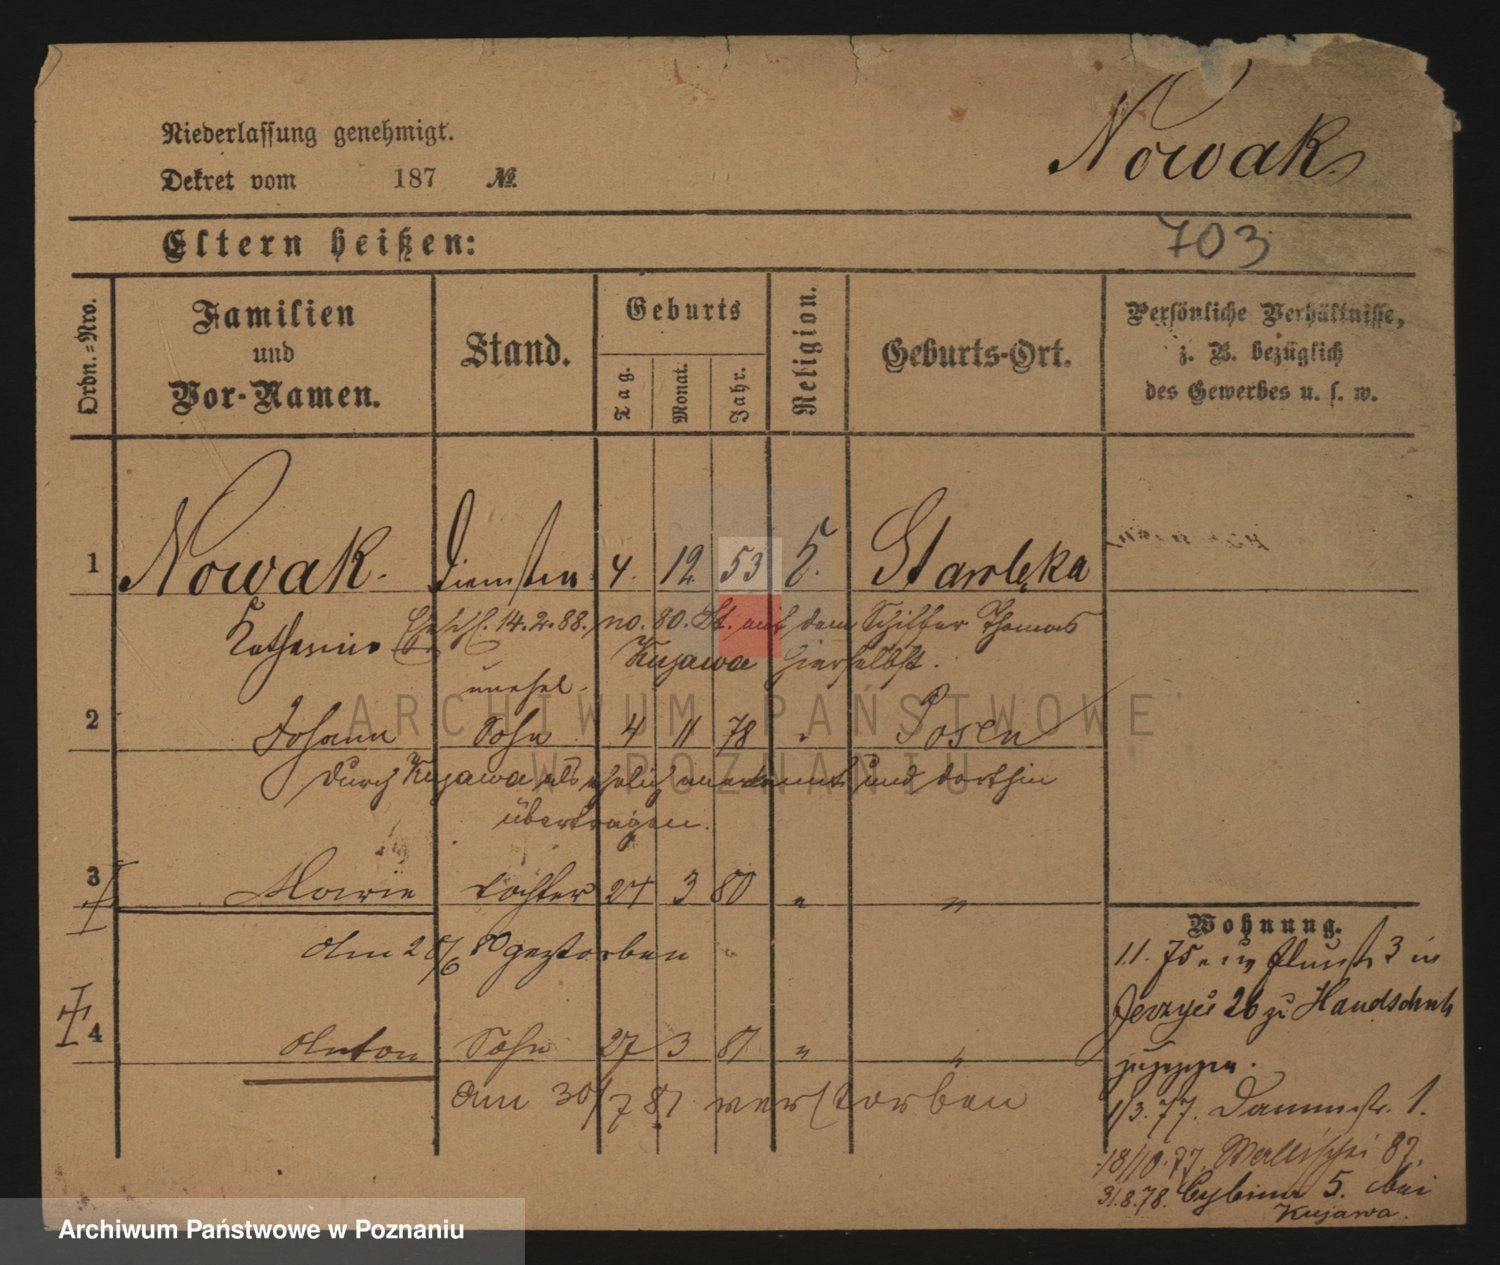 Nowak.
Niederlassung genehmigt.
Dekret vom 187 №
703
Eltern heißen:
Ordn.-Nro.
Familien und Vor-Namen.
Stand.
Geburts
Tag.
Monat.
Jahr.
Religion.
Geburts-Ort.
Persönliche Verhältnisse,
z. B. bezüglich
des Gewerbes u. s. w.
1 Nowak. 4. 12 53
14.2.88. no. 80. St. mit dem Schiffer Thomas
Kujawa hierselbst.
unehel.
2 Johann Sohn 4 11 78 " Posen
durch Kujawa als ehelich anerkannt und dorthin
übertragen.
3 Marie Tochter 27 3 80 " "
gestorben
4 Anton Sohn 27 3 81 " "
am 30/7 81 verstorben
Wohnung.
11. 75 3 in
26 zu Handschuh
1/3. 77. Dammstr. 1.
18/10. 77. Wallischei 87.
31.8.78. Cybina 5. bei
Kujawa.
ARCHIWUM PAŃSTWOWE
W POZNANIU
Archiwum Państwowe w Poznaniu